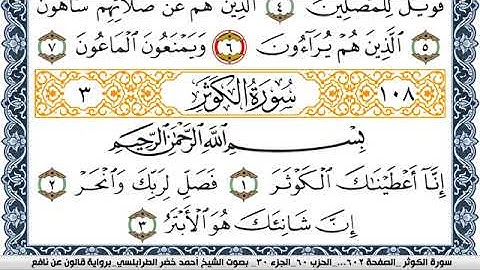 فَوَيْلٌ لِّلْمُصَلِّينَ ٤ الَّذِينَ هُمْ عَن صَلَاتِهِمْ سَاهُونَ
٥ الَّذِينَ هُمْ يُرَآءُونَ ٦ وَيَمْنَعُونَ الْمَاعُونَ ٧
١٠٨ سُورَةُ الْكَوْثَرِ ٣
بِسْمِ اللَّهِ الرَّحْمَٰنِ الرَّحِيمِ
إِنَّا أَعْطَيْنَاكَ الْكَوْثَرَ ١ فَصَلِّ لِرَبِّكَ وَانْحَرْ ٢
إِنَّ شَانِئَكَ هُوَ الْأَبْتَرُ ٣
سورة الكوثر_الصفحة ٦٠٢... الحزب ٦٠_الجزء ٣٠_ بصوت الشيخ أحمد خضر الطرابلسي_برواية قالون عن نافع